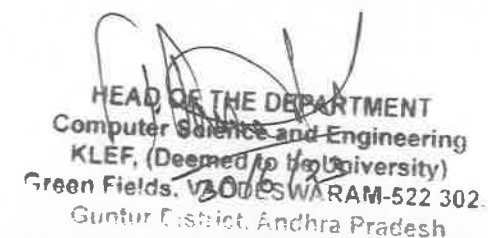 HEAD OF THE DEPARTMENT
Computer Science and Engineering
KLEF, (Deemed to be University)
Green Fields. VADDESWARAM-522 302.
30/6/23
Guntur District, Andhra Pradesh